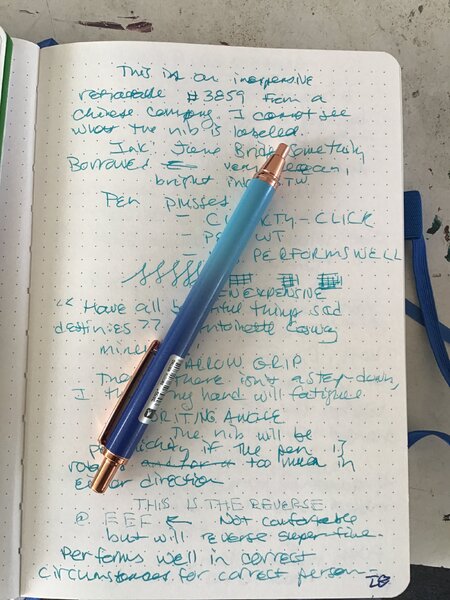 This is an inexpensive
retractable #3859 from a
chinese company. I cannot see
what the nib is labelled.
Ink: Bride Something
Borrowed very green,
bright ink. TW
Pen plusses
- CLICK
- WT
- PERFORMS WELL
INEXPENSIVE
"Have all beautiful things sad
destinies??" Antoinette Cosway
NARROW GRIP
there isn't a step-down,
I my hand will fatigue.
WRITING ANGLE
The nib will be
if the pen is
too much in
direction
THIS IS THE REVERSE
@ EEF ← Not comfortable
but will reverse superfine.
Performs well in correct
circumstances for correct person -